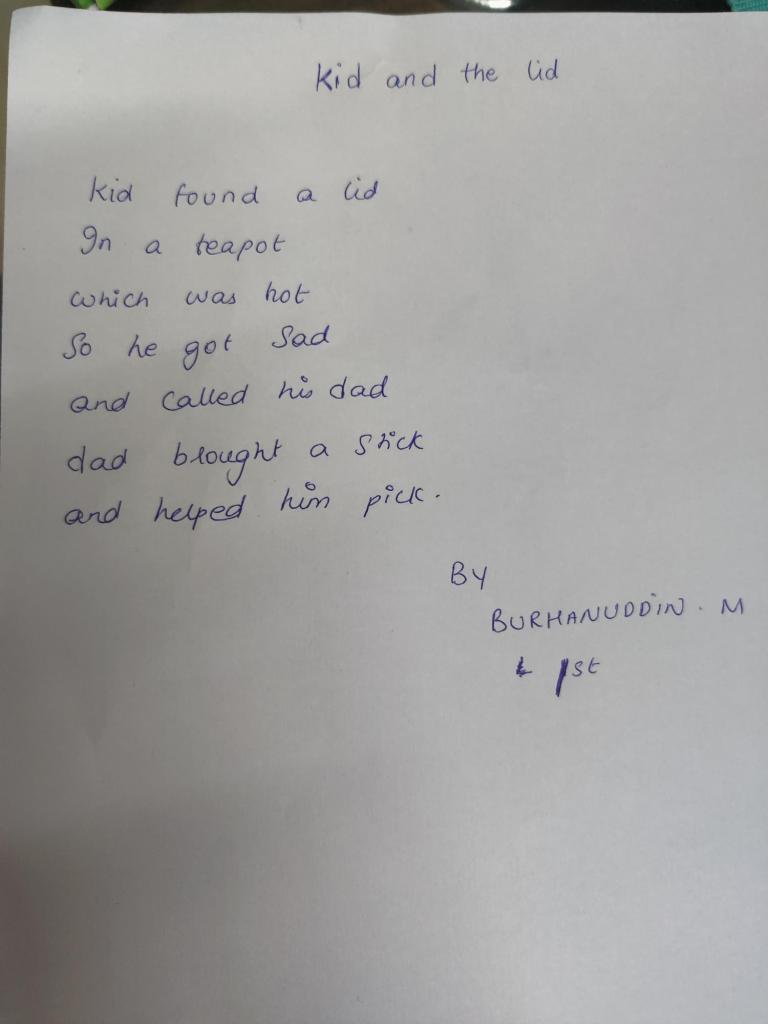 Kid and the lid
Kid found a lid
In a teapot
which was hot
So he got Sad
and called his dad
dad brought a stick
and helped him pick.
BY
BURHANUDDIN. M
1st